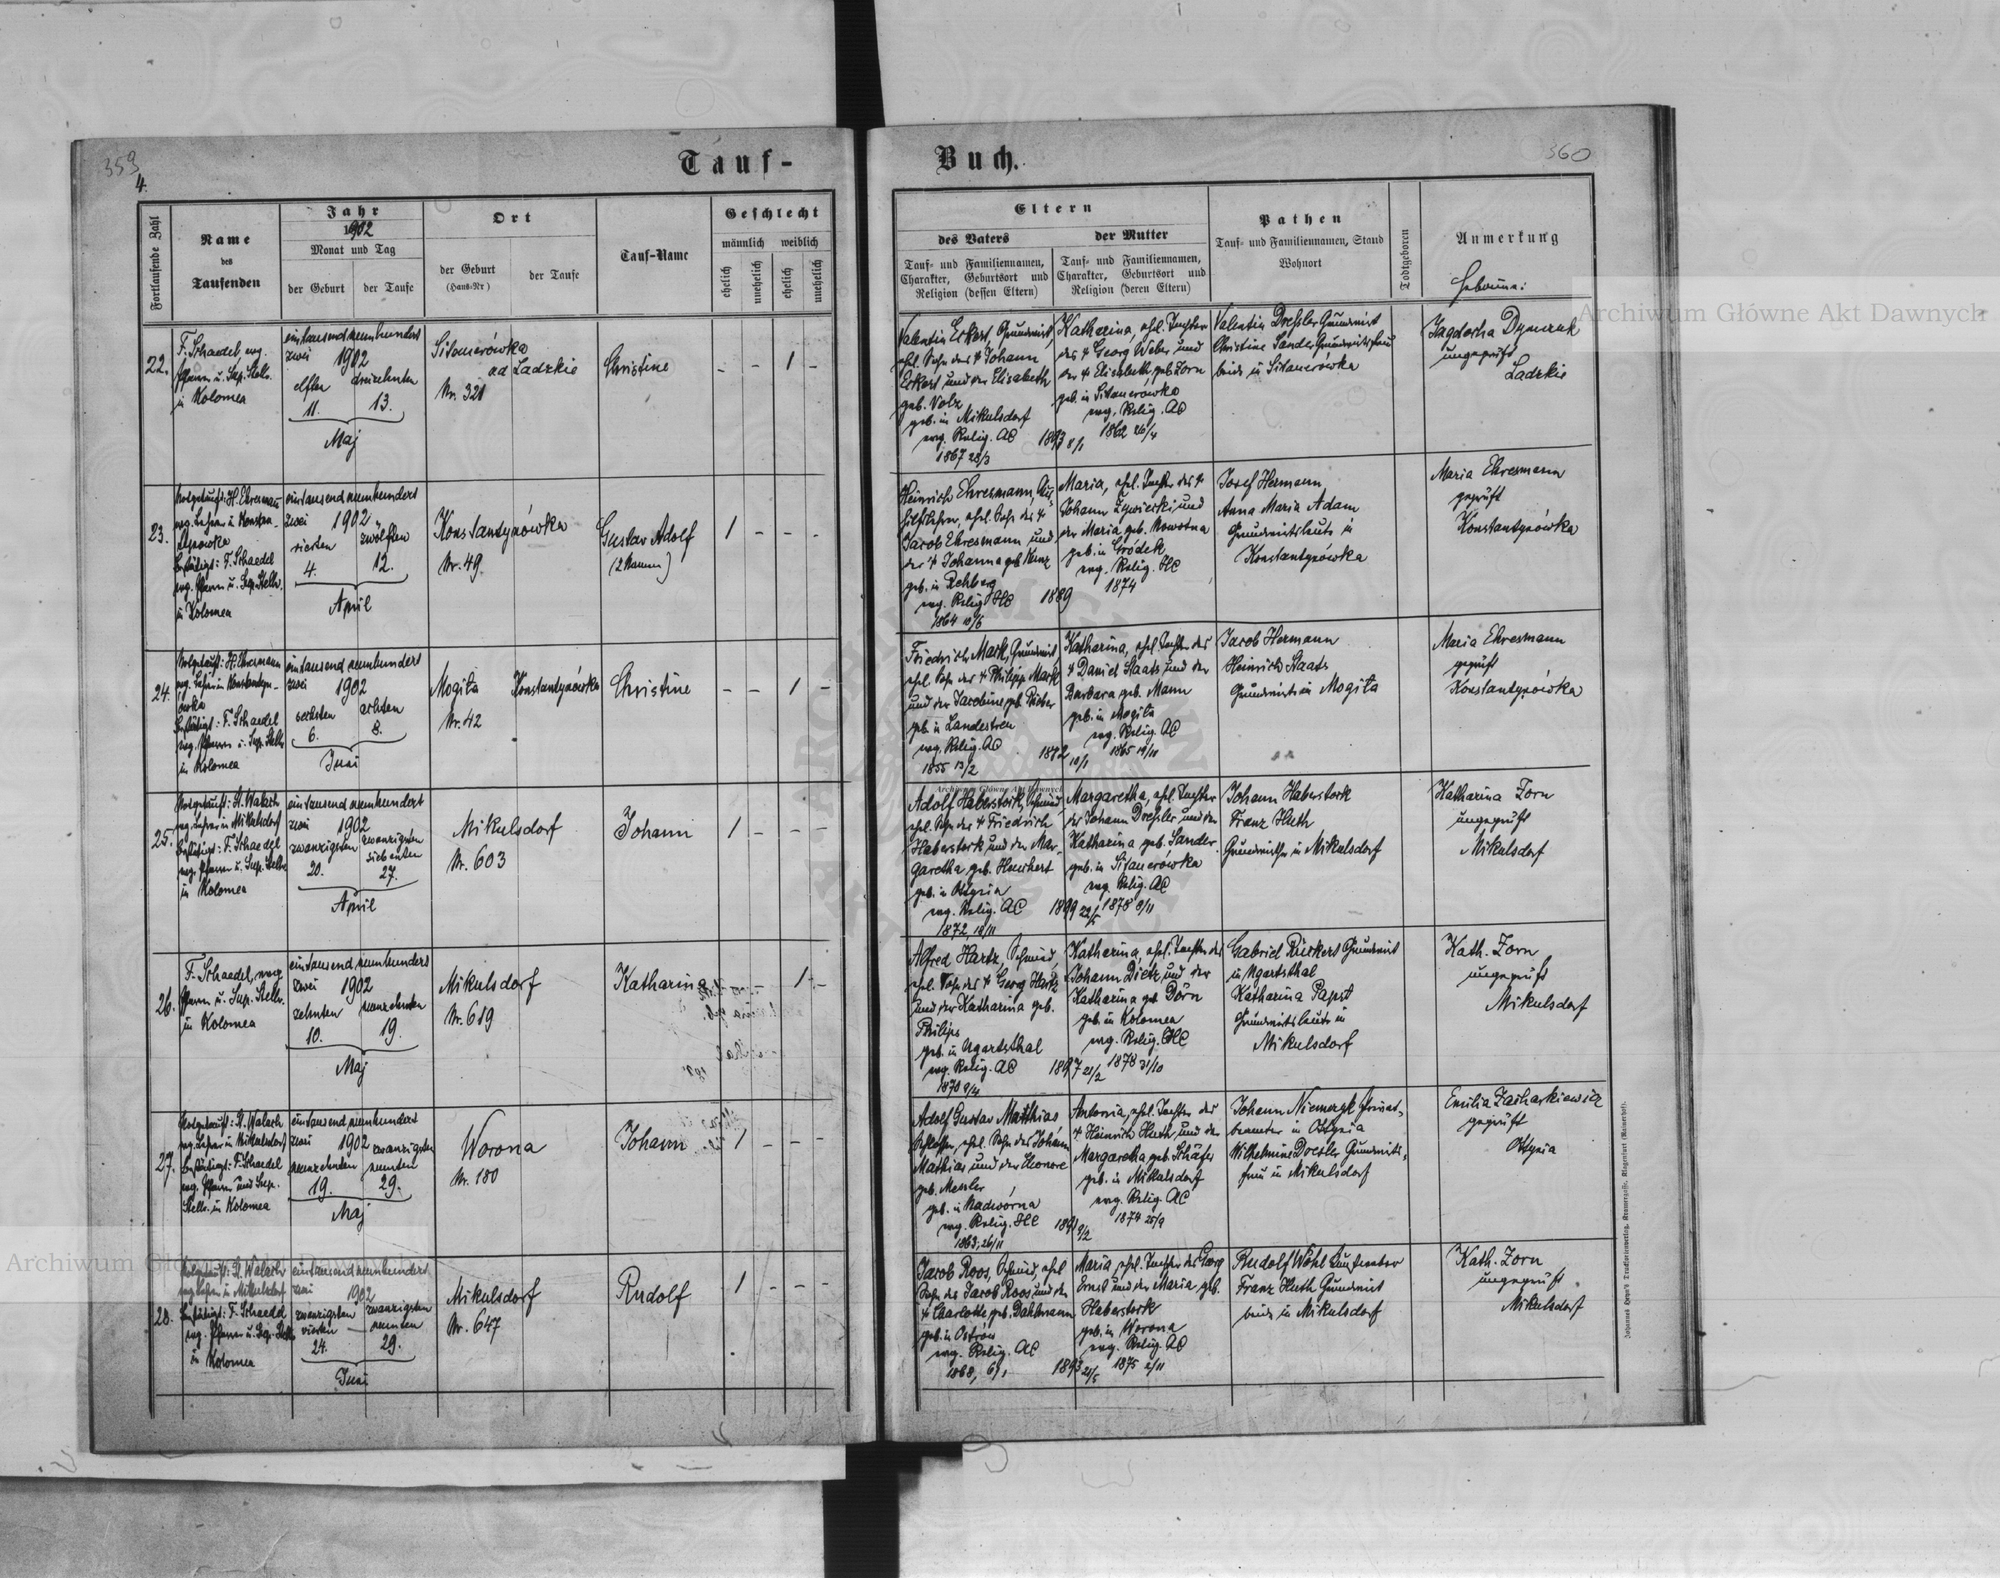 359
4.
Tauf-
Fortlaufende Zahl
Name
des
Taufenden
Jahr
1902
Monat und Tag
der Geburt
der Taufe
Ort
der Geburt
(Haus-Nr)
der Taufe
Tauf-Name
Geschlecht
männlich
weiblich
ehelich
unehelich
ehelich
unehelich
22.
F. Schaedel, evg.
Pfarrer u. Sup. Stellv.
in Kolomea
eintausend neunhundert
zwei 1902
elften
11.
dreizehnten
13.
Maj
Sitauerówka
ad Ladzkie
Nr. 321
Christine
- - 1 -
23.
Notgetauft: H. Ehresmann
evg. Lehrer in Konstan-
tynówka
bestätigt: F. Schaedel
evg. Pfarrer u. Sup. Stellv.
in Kolomea
eintausend neunhundert
zwei 1902
vierten
4.
zwölften
12.
April
Konstantynówka
Nr. 49.
Gustav Adolf
(2 Namen)
1 - - -
24.
Notgetauft: H. Ehresmann
evg. Lehrer in Konstantyn-
ówka
bestätigt: F. Schaedel
evg. Pfarrer u. Sup. Stellv.
in Kolomea
eintausend neunhundert
zwei 1902
sechsten
6.
achten
8.
Juni
Mogiła
Nr. 42
Konstantynówka
Christine
- - 1 -
25.
Notgetauft: H. Walach
evg. Lehrer in Mikulsdorf
bestätigt: F. Schaedel
evg. Pfarrer u. Sup. Stellv.
in Kolomea
eintausend neunhundert
zwei 1902
zwanzigsten
20.
zwanzigsten
siebenten
27.
April
Mikulsdorf
Nr. 603
Johann
1 - - -
26.
F. Schaedel, evg.
Pfarrer u. Sup. Stellv.
in Kolomea
eintausend neunhundert
zwei 1902
zehnten
10.
neunzehnten
19.
Maj
Mikulsdorf
Nr. 619
Katharina
1 -
27.
Notgetauft: H. Walach
evg. Lehrer in Mikulsdorf
bestätigt: F. Schaedel
evg. Pfarrer und Sup.
Stellv. in Kolomea
eintausend neunhundert
zwei 1902
neunzehnten
19.
zwanzigsten
neunten
29.
Maj
Worona
Nr. 180
Johann
1 - - -
28.
Notgetauft: H. Walach
evg. Lehrer in Mikulsdorf
bestätigt: F. Schaedel
evg. Pfarrer u. Sup. Stellv.
in Kolomea
eintausend neunhundert
zwei 1902
zwanzigsten
vierten
24.
zwanzigsten
neunten
29.
Juni
Mikulsdorf
Nr. 647
Rudolf
1 - - -
Buch.
360
Eltern
des Vaters
Tauf- und Familiennamen,
Charakter, Geburtsort und
Religion (dessen Eltern)
der Mutter
Tauf- und Familiennamen,
Charakter, Geburtsort und
Religion (deren Eltern)
Pathen
Tauf- und Familiennamen, Stand
Wohnort
Todtgeboren
Anmerkung
Hebamme:
Valentin Eckert, Grundwirt,
ehl. Sohn des † Johann
Eckert und der Elisabeth
geb. Volz
geb. in Mikulsdorf
evg. Relig. AC
1867 28/3
1893 8/1
Katharina, ehel. Tochter
des † Georg Weber und
der † Elisabeth, geb. Zorn
geb. in Sitauerówka
evg. Relig. AC
1862 26/4
Valentin Dressler Grundwirt
Christine Sander Grundwirtsfrau
beide in Sitauerówka
Jagdocha Dymczuk
ungeprüft
Ladzkie
Heinrich Ehresmann, Aus-
hilfslehrer, ehel. Sohn des †
Jacob Ehresmann und
der † Johanna geb. Kunz
geb. in Rehberg
evg. Relig. HC
1864 10/6
1889
Maria, ehel. Tochter des †
Johann Zywiecki und
der Maria geb. Nowotna
geb. in Gródek
evg. Relig. HC
1874
Josef Hermann
Anna Maria Adam
Grundwirtsleute in
Konstantynówka
Maria Ehresmann
geprüft
Konstantynówka
Friedrich Mark, Grundwirt
ehel. Sohn des † Philipp Mark
und der Jacobine geb.
geb. in Landestreu
evg. Relig. AC
1855 13/2
1892 10/1
Katharina, ehel. Tochter des
† Daniel Staats und der
Barbara geb. Mann
geb. in Mogiła
evg. Relig. AC
1865 19/11
Jacob Hermann
Heinrich Staats
Grundwirte in Mogiła
Maria Ehresmann
geprüft
Konstantynówka
Adolf Haberstock, Schmied,
ehel. Sohn des † Friedrich
Haberstock und der Mar-
garetha geb.
geb. in Ottynia
evg. Relig. AC
1872 18/11
1899 22/5
Margaretha, ehel. Tochter
des Johann Dressler und der
Katharina geb. Sander
geb. in Sitauerówka
evg. Relig. AC
1878 9/11
Johann Haberstock
Franz Huth
Grundwirthe in Mikulsdorf
Katharina Zorn
ungeprüft
Mikulsdorf
Alfred Hartz, Schmied,
ehel. Sohn des † Georg Hartz
und der Katharina geb.
Philips
geb. in Ugartsthal
evg. Relig. AC
1870 9/4
1897 21/2
Katharina, ehel. Tochter des
Johann Dietz und der
Katharina geb. Dörn
geb. in Kolomea
evg. Relig. HC
1878 31/10
Gabriel Rückert Grundwirt
in Ugartsthal
Katharina Papst
Grundwirtsleute in
Mikulsdorf
Kath. Zorn
ungeprüft
Mikulsdorf
Adolf Gustav Matthias
Schlosser, ehel. Sohn des Johann
Mathias und der Eleonore
geb. Messler
geb. in Nadwórna
evg. Relig. HC
1863, 26/11
1891 9/2
Antonia, ehel. Tochter des
† Heinrich Huth und der
Margaretha geb. Schäfer
geb. in Mikulsdorf
evg. Relig. AC
1874 25/9
Johann Niemergk Privat-
beamter in Ottynia
Wilhelmine Dressler Grundwirts-
frau in Mikulsdorf
Emilia Zacharkiewicz
geprüft
Ottynia
Jacob Roos, Schmied, ehel
Sohn des Jacob Roos und der
† Charlotte geb. Dahlmann
geb. in Ostrów
evg. Relig. AC
1868,
1893 21/5
Maria, ehel. Tochter des Georg
Ernst und der Maria geb.
Haberstock
geb. in Worona
evg. Relig. AC
1875 2/11
Rudolf Wohl
Franz Huth Grundwirt
beide in Mikulsdorf
Kath. Zorn
ungeprüft
Mikulsdorf
Archiwum Główne Akt Dawnych
Archiwum Główne Akt Dawnych
Archiwum Główne Akt Dawnych